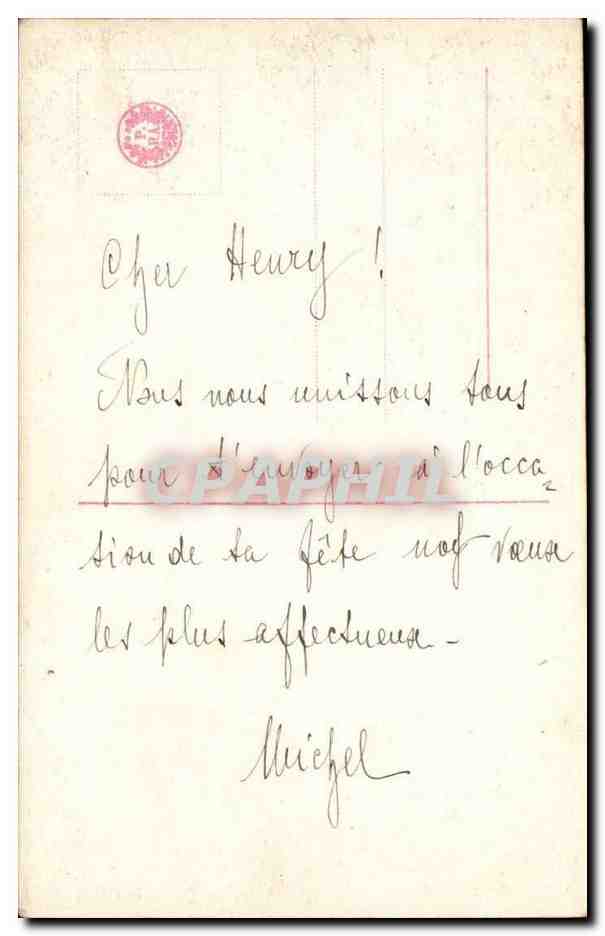 Cher Henry !
Nous nous unissons tous
pour t'envoyer à l'occa-
sion de ta fête nos vœux
les plus affectueux -
Michel
CPAPHIL